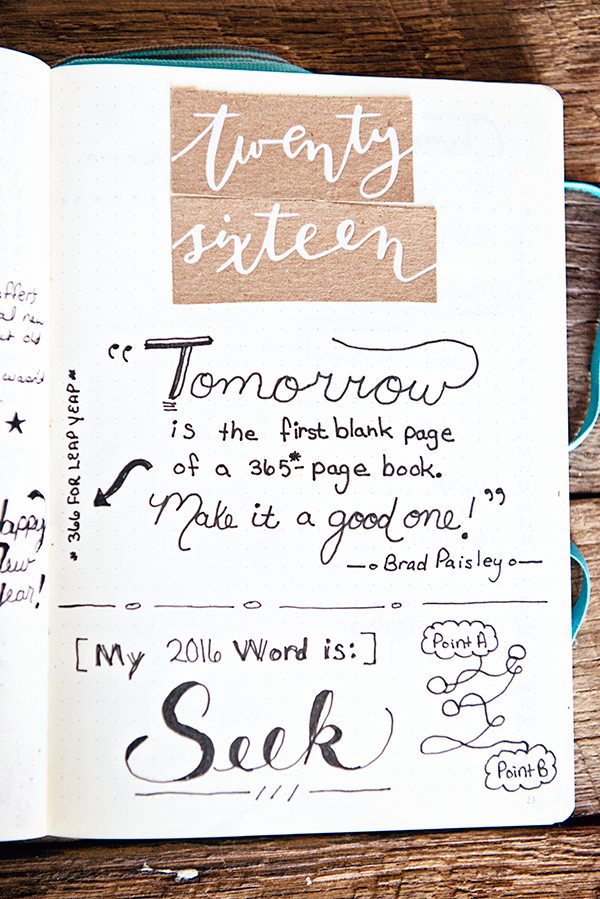 twenty
sixteen
"Tomorrow
is the first blank page
of a 365*-page book.
Make it a good one!"
—o Brad Paisley o—
* 366 FOR LEAP YEAP *
[My 2016 Word is:]
Seek
Point A
Point B
23
offers
new
old
wasn't
Happy
New
Year!